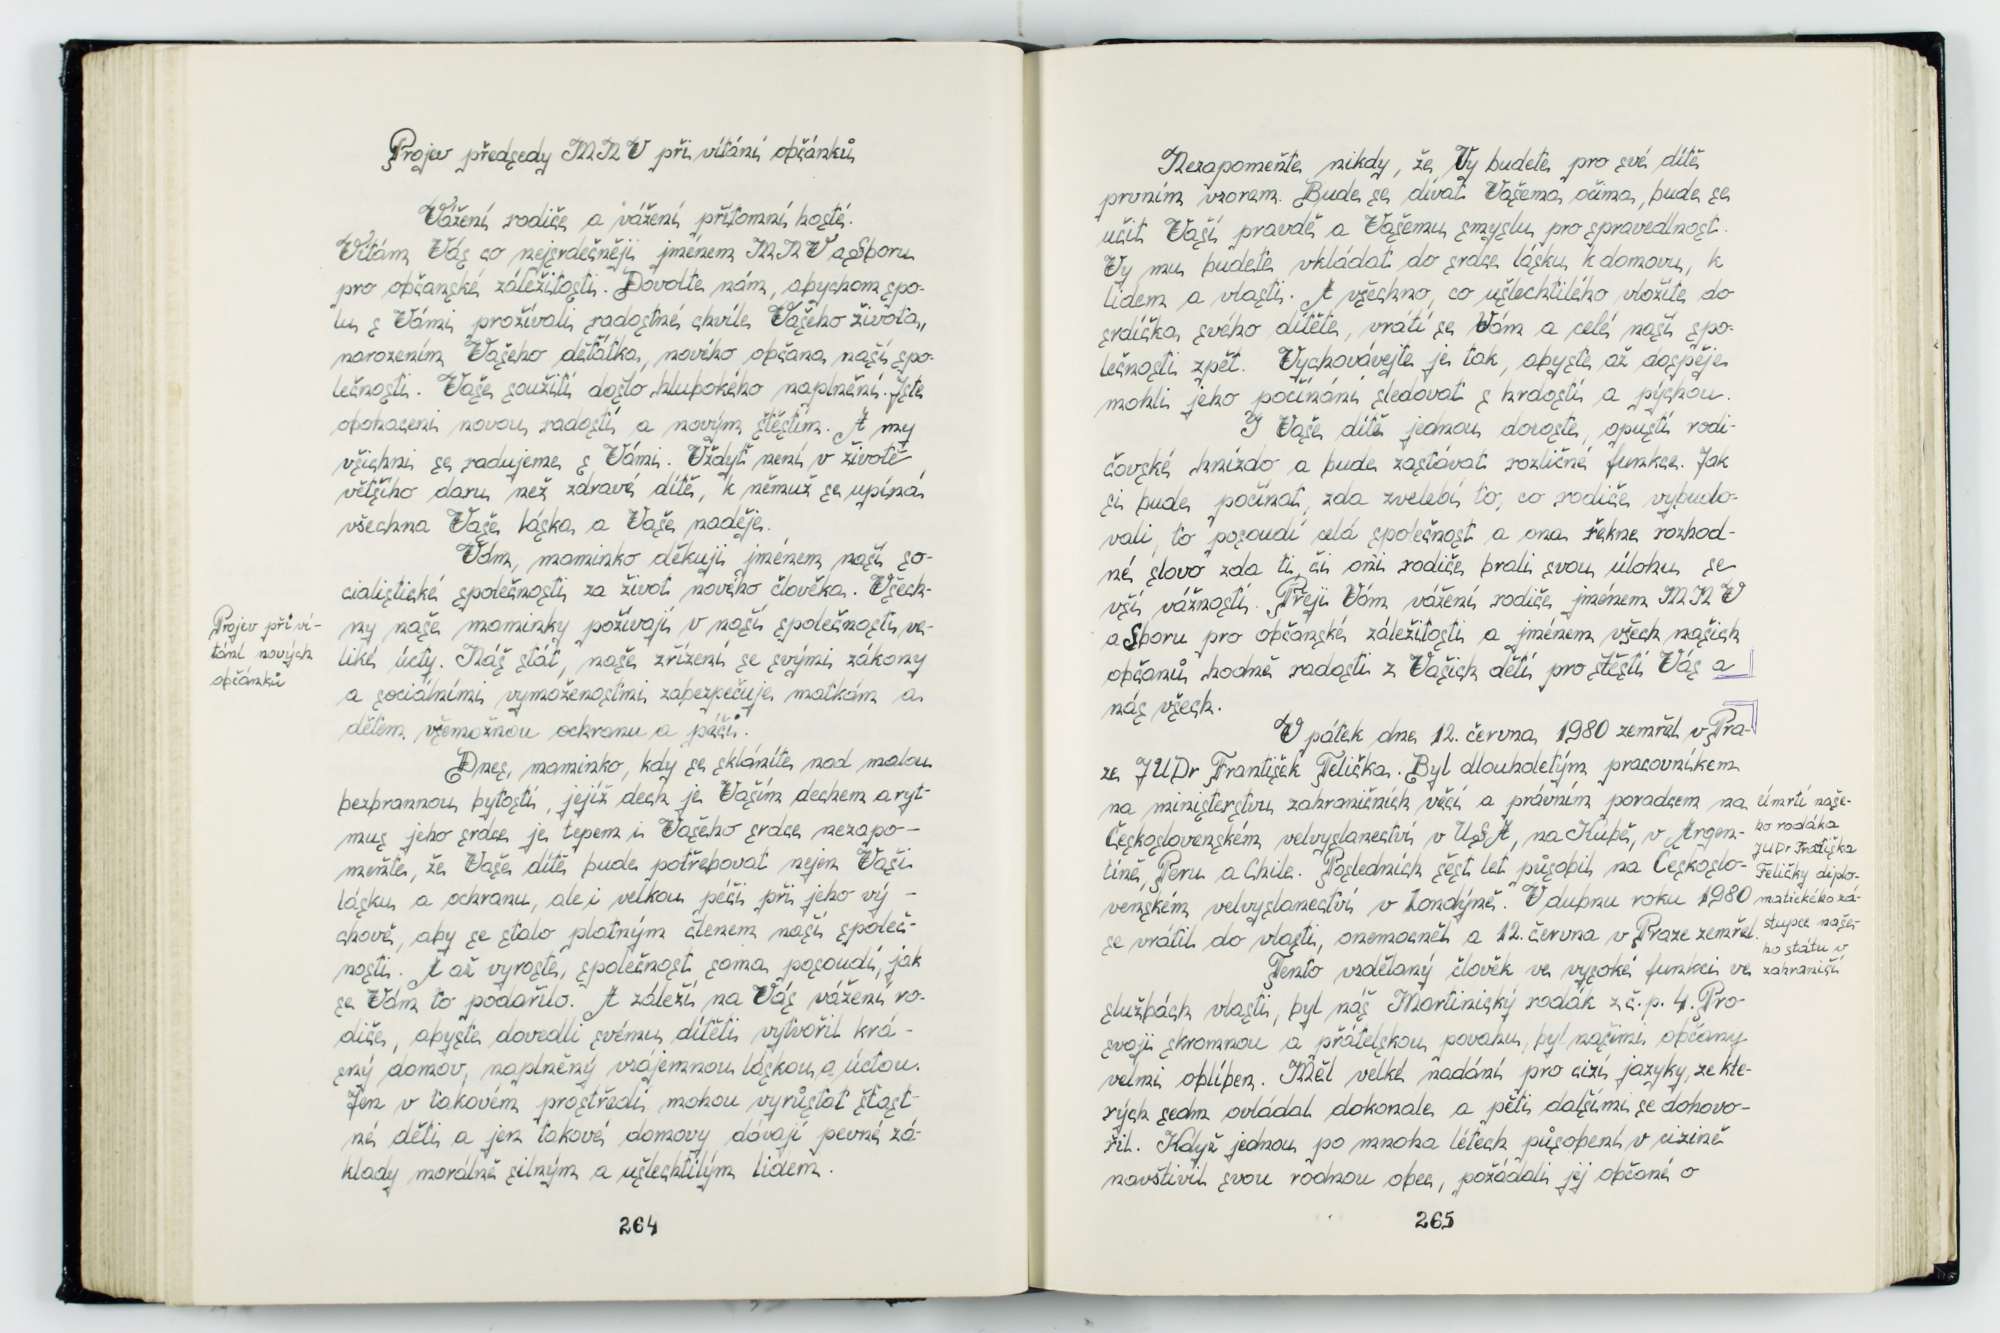 Projev předsedy MNV při vítání občánků
Vážení rodiče a vážení přítomní hosté.
Vítám Vás co nejsrdečněji jménem MNV a Sboru
pro občanské záležitosti. Dovolte nám, abychom spo-
lu s Vámi prožívali radostné chvíle Vašeho života,
narozením Vašeho děťátka, nového občana naší spo-
lečnosti. Vaše soužití došlo hlubokého naplnění. Jste
obohaceni novou radostí a novým štěstím. A my
všichni se radujeme s Vámi. Vždyť není v životě
většího daru než zdravé dítě, k němuž se upíná
všechna Vaše láska a Vaše naděje.
Vám, maminko děkuji jménem naší so-
cialistické společnosti za život nového člověka. Všech-
ny naše maminky požívají v naší společnosti ve-
liké úcty. Náš stát, naše zřízení se svými zákony
a sociálními vymoženostmi zabezpečuje matkám a
dětem všemožnou ochranu a péči.
Projev při ví-
tání nových
občánků
Dnes, maminko, kdy se skláníte nad malou
bezbrannou bytostí, jejíž dech je Vaším dechem a ryt-
mus jeho srdce je tepem i Vašeho srdce nezapo-
meňte, že Vaše dítě bude potřebovat nejen Vaši
lásku a ochranu, ale i velkou péči při jeho vý-
chově, aby se stalo platným členem naší společ-
nosti. A až vyroste, společnost sama posoudí, jak
se Vám to podařilo. A záleží na Vás vážení ro-
diče, abyste dovedli svému dítěti vytvořil krá-
sný domov, naplněný vzájemnou láskou a úctou.
Jen v takovém prostředí mohou vyrůstat šťast-
né děti a jen takové domovy dávají pevné zá-
klady morálně silným a ušlechtilým lidem.
264
Nezapomeňte nikdy, že Vy budete pro své dítě
prvním vzorem. Bude se dívat Vašema očima, bude se
učit Vaší pravdě a Vašemu smyslu pro spravedlnost.
Vy mu budete vkládat do srdce lásku k domovu, k
lidem a vlasti. A všechno, co ušlechtilého vložíte do
srdíčka svého dítěte, vrátí se Vám a celé naší spo-
lečnosti zpět. Vychovávejte je tak, abyste až dospěje
mohli jeho počínání sledovat s hrdostí a pýchou.
I Vaše dítě jednou doroste, opustí rodi-
čovské hnízdo a bude zastávat rozličné funkce. Jak
si bude počínat, zda zvelebí to, co rodiče vybudo-
vali, to posoudí celá společnost a ona řekne rozhod-
né slovo zda ti, či oni rodiče brali svou úlohu se
vší vážností. Přeji Vám vážení rodiče jménem MNV
a Sboru pro občanské záležitosti a jménem všech našich
občanů hodně radosti z Vašich dětí pro štěstí Vás a
nás všech.
V pátek dne 12. června 1980 zemřel v Pra-
ze JUDr František Felička. Byl dlouholetým pracovníkem
na ministerstvu zahraničních věcí a právním poradcem na
Československém velvyslanectví v USA, na Kubě, v Argen-
tině, Peru a Chile. Posledních šest let působil na Českoslo-
venském velvyslanectví v Londýně. V dubnu roku 1980
se vrátil do vlasti, onemocněl a 12. června v Praze zemřel.
Úmrtí naše-
ho rodáka
JUDr Františka
Feličky diplo-
matického zá-
stupce naše-
ho státu v
zahraničí
Tento vzdělaný člověk ve vysoké funkci ve
službách vlasti, byl náš Martinický rodák z č.p. 4. Pro
svoji skromnou a přátelskou povahu, byl našimi občany
velmi oblíben. Měl velké nadání pro cizí jazyky, ze kte-
rých sedm ovládal dokonale a pěti dalšími se dohovo-
řil. Když jednou po mnoha létech působení v cizině
navštívil svou rodnou obec, požádali jej občané o
265